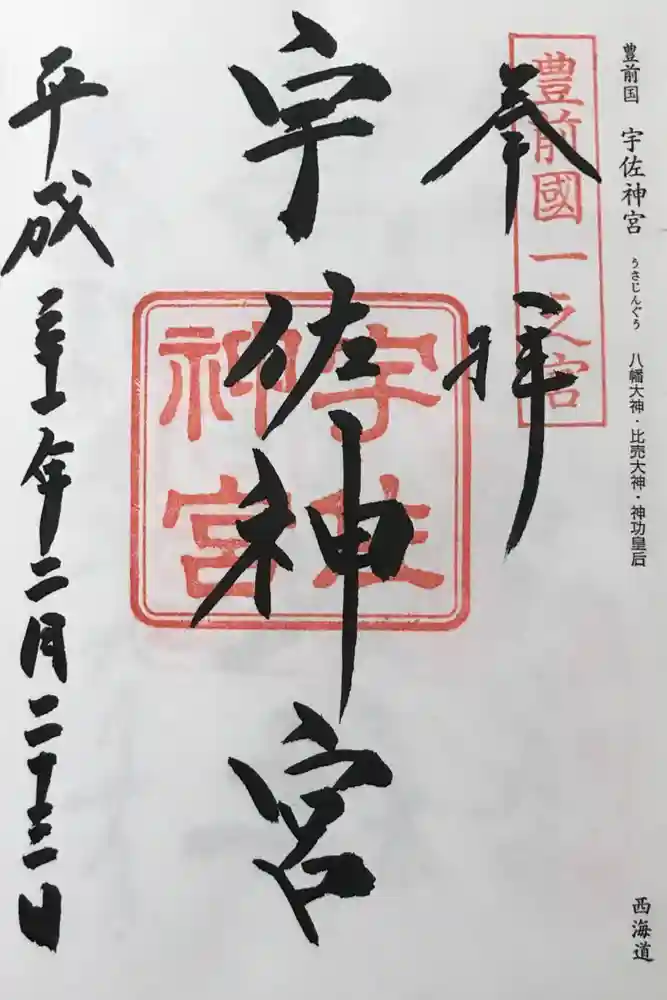 豊前国 宇佐神宮 うさじんぐう 八幡大神・比売大神・神功皇后 西海道
豊前國一之宮
奉拝
宇佐神宮
宇佐
神宮
平成三十一年二月二十三日